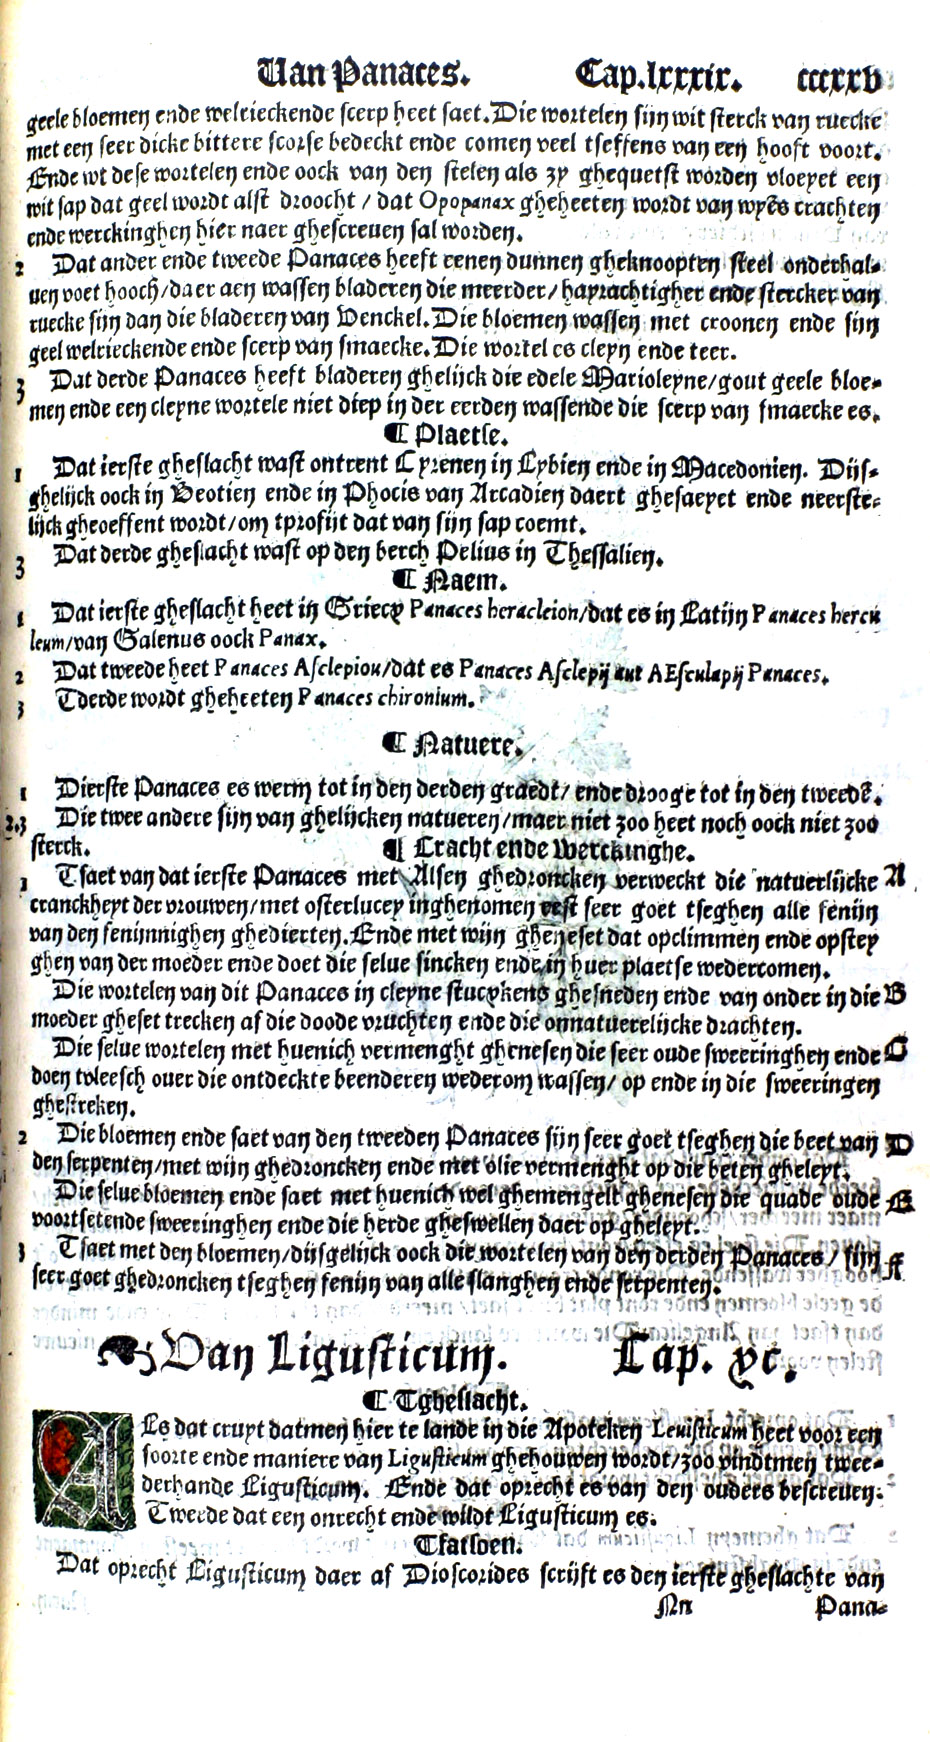 Van Panaces. Cap.lxxxix. ccccxxv
geele bloemen ende welrieckende scerp heet saet. Die wortelen sijn wit sterck van ruecke
met een seer dicke bittere scorse bedeckt ende comen veel tseffens van een hooft voort.
Ende wt dese wortelen ende oock van den stelen als zy ghequetst worden vloeyet een
wit sap dat geel wordt alst droocht / dat Opopanax gheheeten wordt van wyēs crachten
ende werckinghen hier naer ghescreven sal worden.
2 Dat ander ende tweede Panaces heeft eenen dunnen gheknoopten steel onderhal-
uen voet hooch/daer aen wassen bladeren die meerder/hayrachtigher ende stercker van
ruecke sijn dan die bladeren van Venckel. Die bloemen wassen met croonen ende sijn
geel welrieckende ende scerp van smaecke. Die wortel es cleyn ende teer.
3 Dat derde Panaces heeft bladeren ghelijck die edele Marioleyne/gout geele bloe-
men ende een cleyne wortele niet diep in der eerden wassende die scerp van smaecke es.
¶ Plaetse.
1 Dat ierste gheslacht wast ontrent Cyrenen in Lybien ende in Macedonien. Dijs-
ghelijck oock in Beotien ende in Phocis van Arcadien daert ghesaeyet ende neerste-
lijck gheoeffent wordt/om tprofijt dat van sijn sap coemt.
3 Dat derde gheslacht wast op den berch Pelius in Thessalien.
¶ Naem.
1 Dat ierste gheslacht heet in Griecx Panaces heracleion/dat es in Latijn Panaces hercu
leum/van Galenus oock Panax.
2 Dat tweede heet Panaces Asclepiou/dat es Panaces Asclepij aut AEsculapij Panaces.
3 Tderde wordt gheheeten Panaces chironium.
¶ Natuere.
1 Dierste Panaces es werm tot in den derden graedt/ ende drooge tot in den tweedē.
2.3 Die twee andere sijn van ghelijcken natueren/maer niet zoo heet noch oock niet zoo
sterck. ¶ Cracht ende Werckinghe.
1 Tsaet van dat ierste Panaces met Alsen ghedroncken verweckt die natuerlijcke A
cranckheyt der vrouwen/met osterlucey inghenomen eest seer goet tseghen alle fenijn
van den fenijnnighen ghedierten. Ende met wijn gheneset dat opclimmen ende opstey
ghen van der moeder ende doet die selue sincken ende in huer plaetse wedercomen.
Die wortelen van dit Panaces in cleyne stucxkens ghesneden ende van onder in die B
moeder gheset trecken af die doode vruchten ende die onnatuerelijcke drachten.
Die selue wortelen met huenich vermenght ghenesen die seer oude sweeringhen ende C
doen tvleesch ouer die ontdeckte beenderen wederom wassen/ op ende in die sweeringen
ghestreken.
2 Die bloemen ende saet van den tweeden Panaces sijn seer goet tseghen die beet van D
den serpenten/met wijn ghedroncken ende met olie vermenght op die beten gheleyt.
Die selue bloemen ende saet met huenich wel ghemengelt ghenesen die quade oude E
voortsetende sweeringhen ende die herde gheswellen daer op gheleyt.
3 Tsaet met den bloemen/dijsgelijck oock die wortelen van den derden Panaces / sijn F
seer goet ghedroncken tseghen fenijn van alle slanghen ende serpenten.
Van Ligusticum. Cap. xc.
¶ Tgheslacht.
Als dat cruyt datmen hier te lande in die Apoteken Leuisticum heet voor een
soorte ende maniere van Ligusticum ghehouwen wordt/zoo vindtmen twee-
derhande Ligusticum. Ende dat oprecht es van den ouders bescreuen.
Tweede dat een onrecht ende wildt Ligusticum es.
Tfatsoen.
Dat oprecht Ligusticum daer af Dioscorides scrijft es den ierste gheslachte van
Nn Pana-